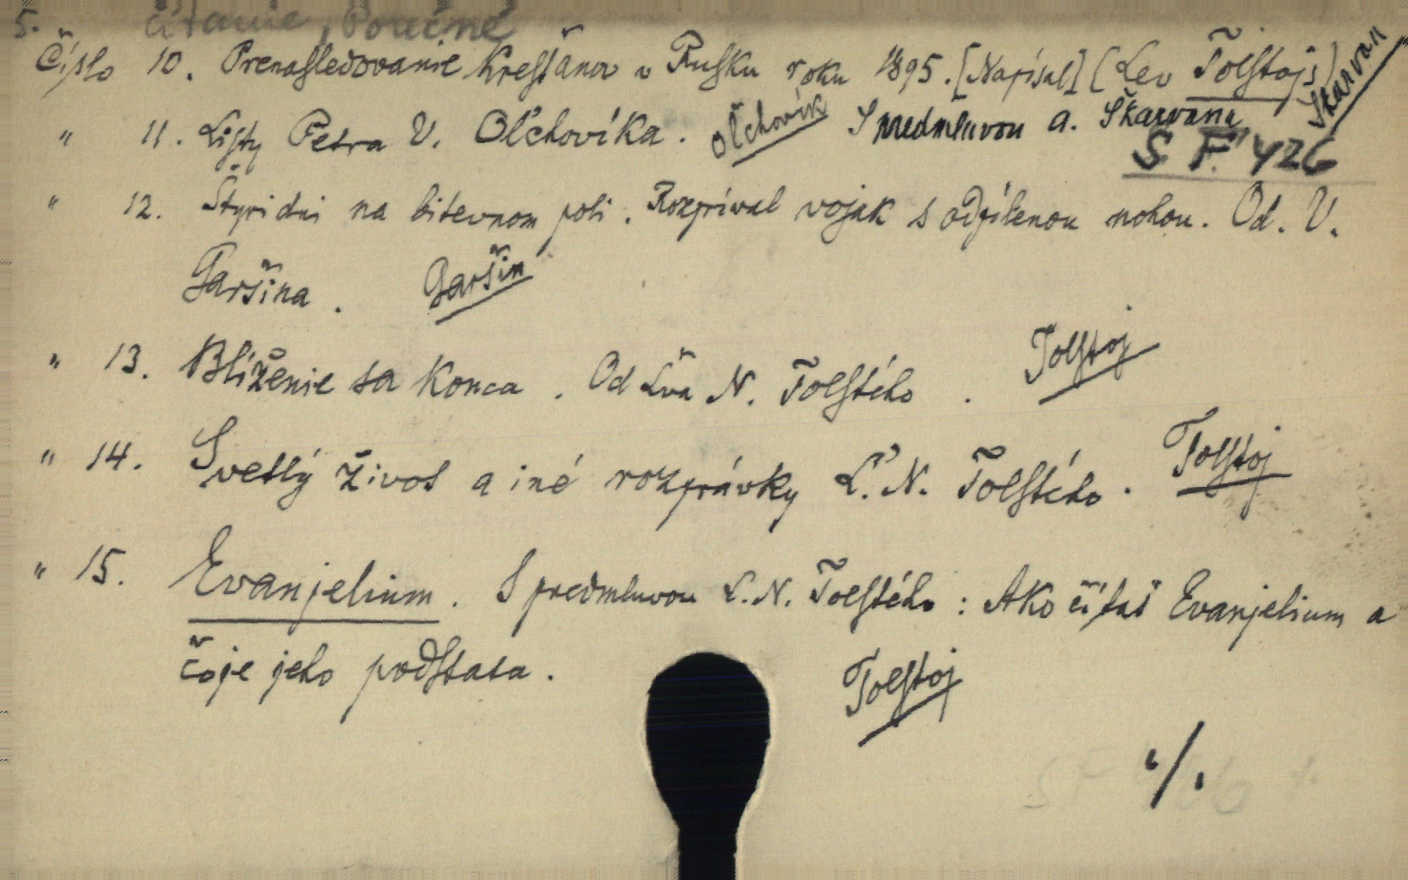 5. Čítanie, Poučné
Číslo 10. Prenasledovanie Kresťanov v Rusku roku 1895. [Napísal] (Lev Tolstojs) Škarvan
„ 11. Listy Petra V. Oľchovíka. Oľchovík S predmluvou A. Škarvana
S F 426
„ 12. Štyri dni na bitevnom poli. Rozprával vojak s odpílenou nohou. Od. V.
Garšina. Garšin
„ 13. Blíženie sa Konca. Od Ľva N. Tolstého. Tolstoj
„ 14. Svetlý život a iné rozprávky Ľ. N. Tolstého. Tolstoj
„ 15. Evanjelium. S predmluvou L. N. Tolstého: Ako čítať Evanjelium a
čo je jeho podstata. Tolstoj